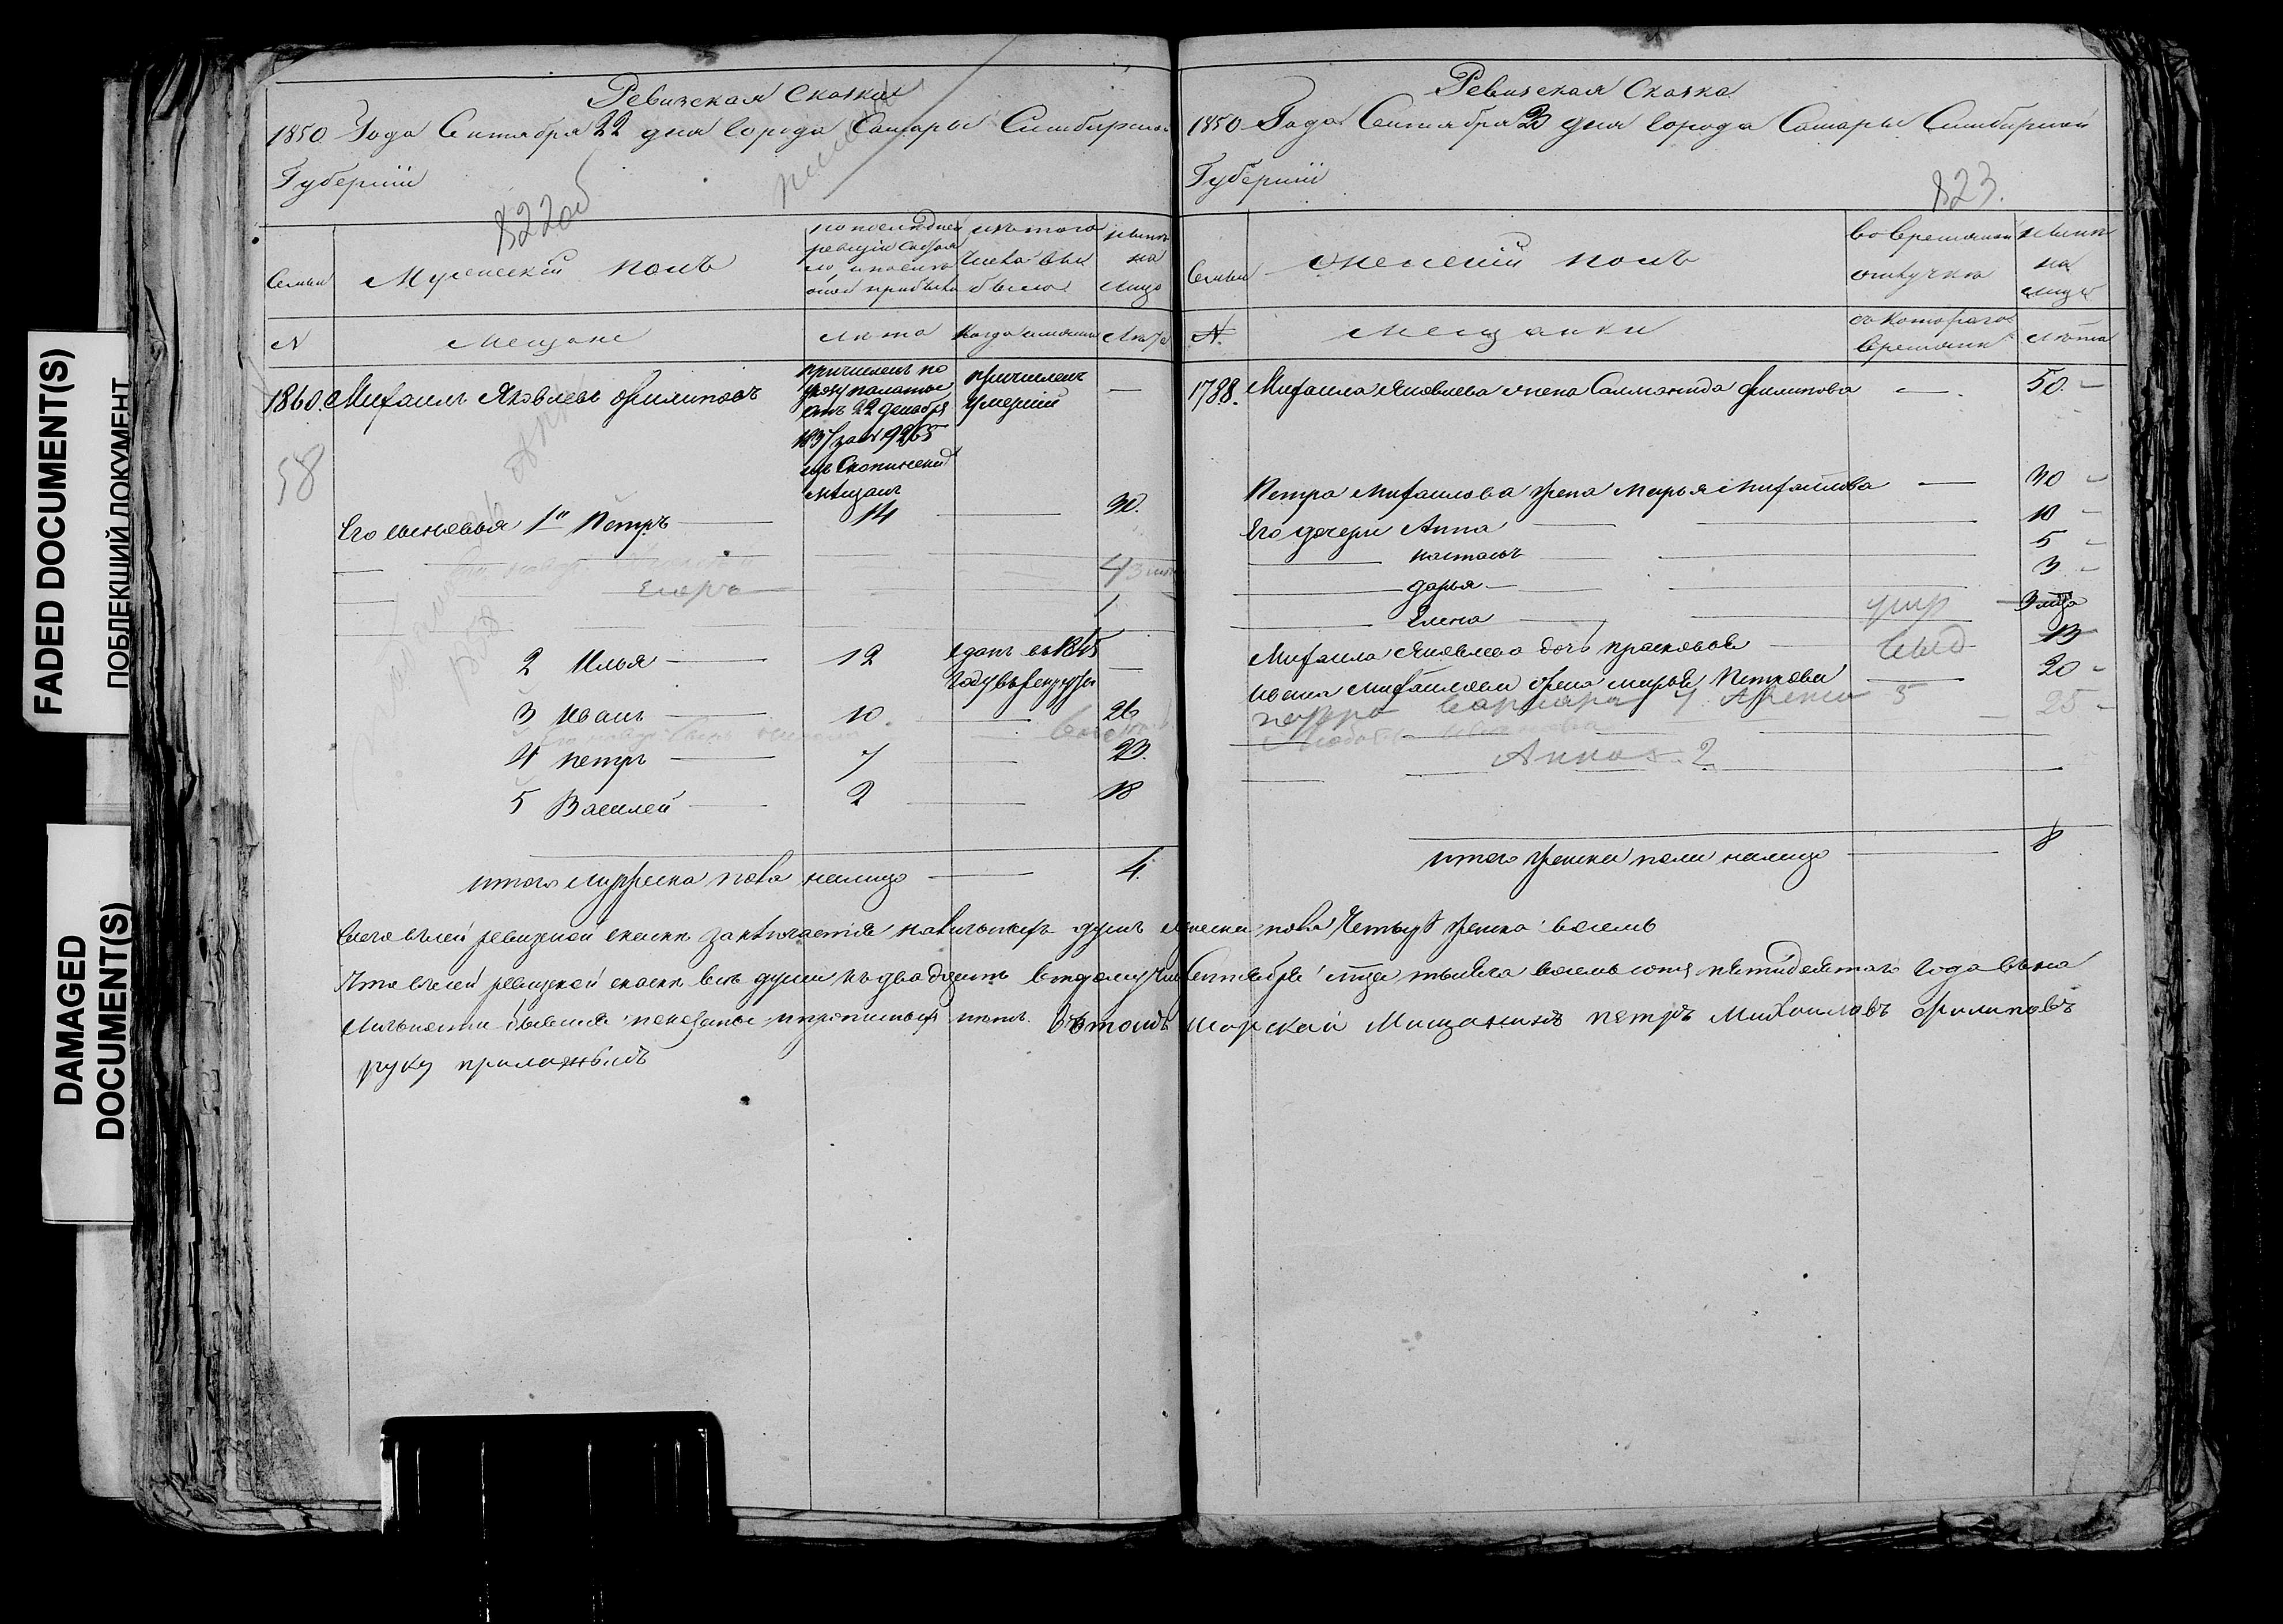 FADED DOCUMENT(S)
ПОБЛЕКЩИЙ ДОКУМЕНТ
DAMAGED
DOCUMENT(S)
Ревизская Сказка
1850 Года Сентября 22 дня города Самары Симбирской
Губернiи
822об
Семьи
Мужескiй полъ
по последней
ревизiи состоя
ло, и после
оной прибыло
изъ того
числа вы
было
ныне
на
лицо
N
Мещане
Лета
Когда именно
Лета
1860. Михаилъ Яковлевъ Филиповъ
причисленъ по
указу палаты
отъ 22 декабря
1837 за № 9265
изъ Скопинских
мещанъ
причисленъ
умершiй
—
58
Его сыновья 1й Петръ — 14 — 30.
Егоръ
2 Илья — 12
сданъ въ 1845
году въ рекруты
—
3 Иванъ — 10. — 26
4 петръ — 7 — 23.
5 Василей — 2 — 18
итого мужеска пола налицо — 4.
Ревизская Сказка
1850 Года Сентября 22 дня города Самары Симбирской
Губернiи
823.
Семьи
Женскiй полъ
во временной
отлучке
ныне
на
лицо
N.
мещанки
съ котораго
времени
лета
1788. Михаила Яковлева жена Саломонида Филипова — 50 -
Петра Михаилова жена Марья Михаилова — 30 -
Его дочери Анна — 10 -
настасья — 5 -
дарья — 3 -
Елена — умр
Михаила Яковлева дочь прасковья — 13
Ивана Михаилова жена марья Петрова — 20 -
Варвара 7 5 25 -
Анна 2
итого женска пола налицо — 8
Всего въ сей ревизской сказке заключается наличныхъ душъ мужеска пола Четыре женска восемь
Что въ сей ревизской сказке все души къ двадцать второму числу Сентября тысяча восемь сотъ пятидесятаго года въ на
личности бывшия показаны и прописныхъ нетъ. въ томъ Мещанинъ петръ Михаиловъ Филиповъ
руку приложилъ